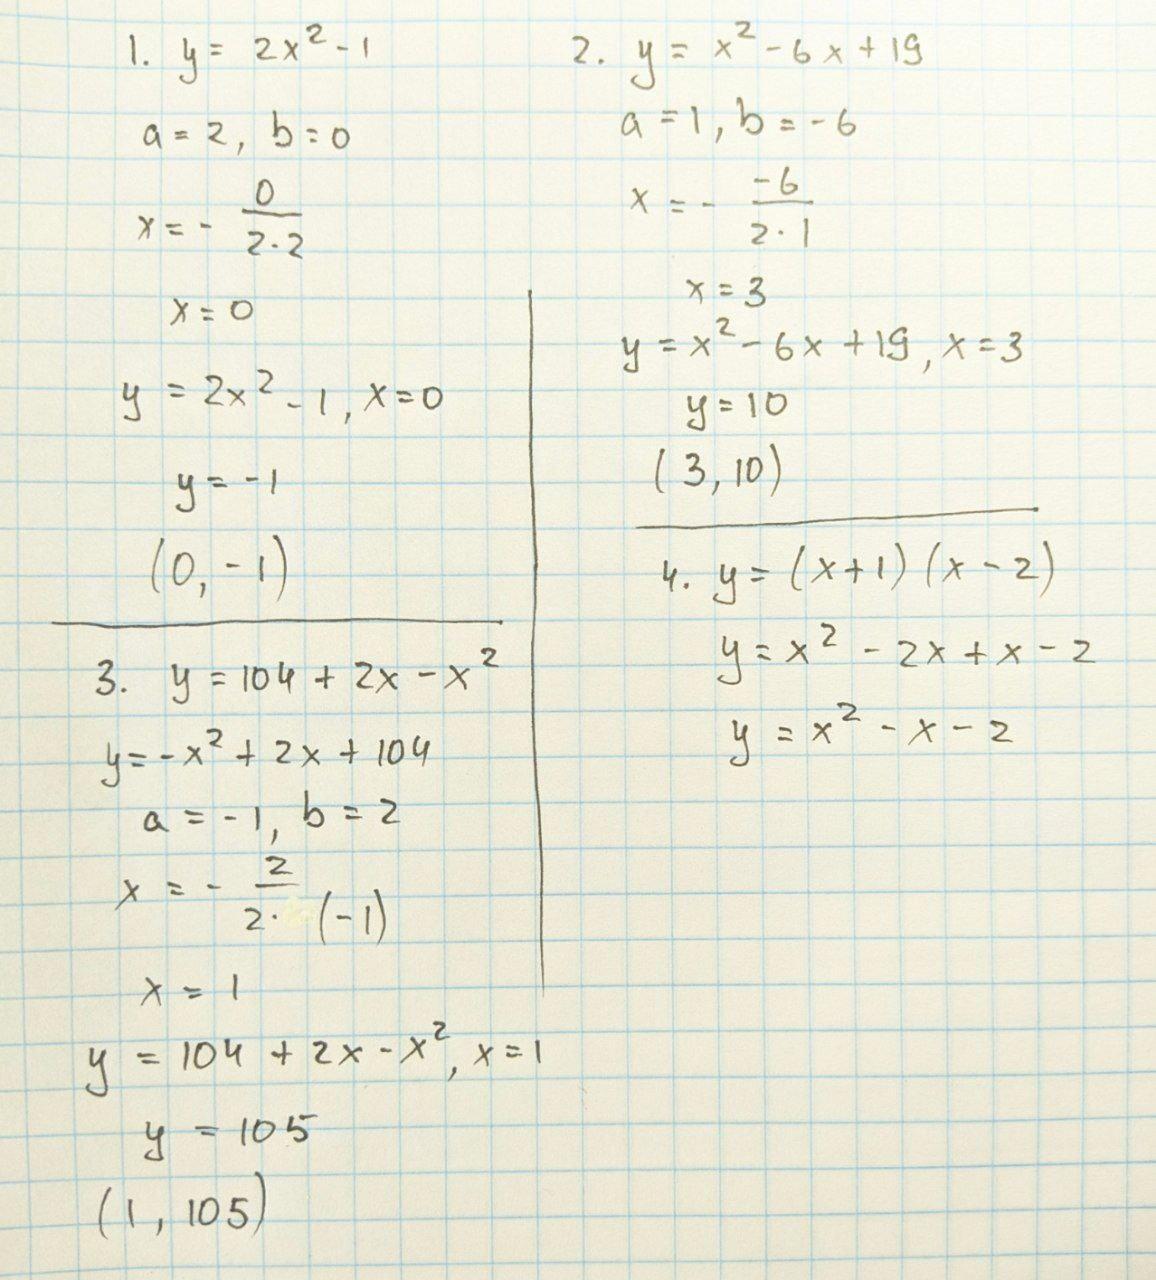 1. y = 2x² - 1
a = 2, b = 0
x = - 0/(2·2)
x = 0
y = 2x² - 1, x = 0
y = -1
(0, -1)
2. y = x² - 6x + 19
a = 1, b = -6
x = - -6/(2·1)
x = 3
y = x² - 6x + 19, x = 3
y = 10
(3, 10)
3. y = 104 + 2x - x²
y = -x² + 2x + 104
a = -1, b = 2
x = - 2/(2·(-1))
x = 1
y = 104 + 2x - x², x = 1
y = 105
(1, 105)
4. y = (x+1)(x-2)
y = x² - 2x + x - 2
y = x² - x - 2